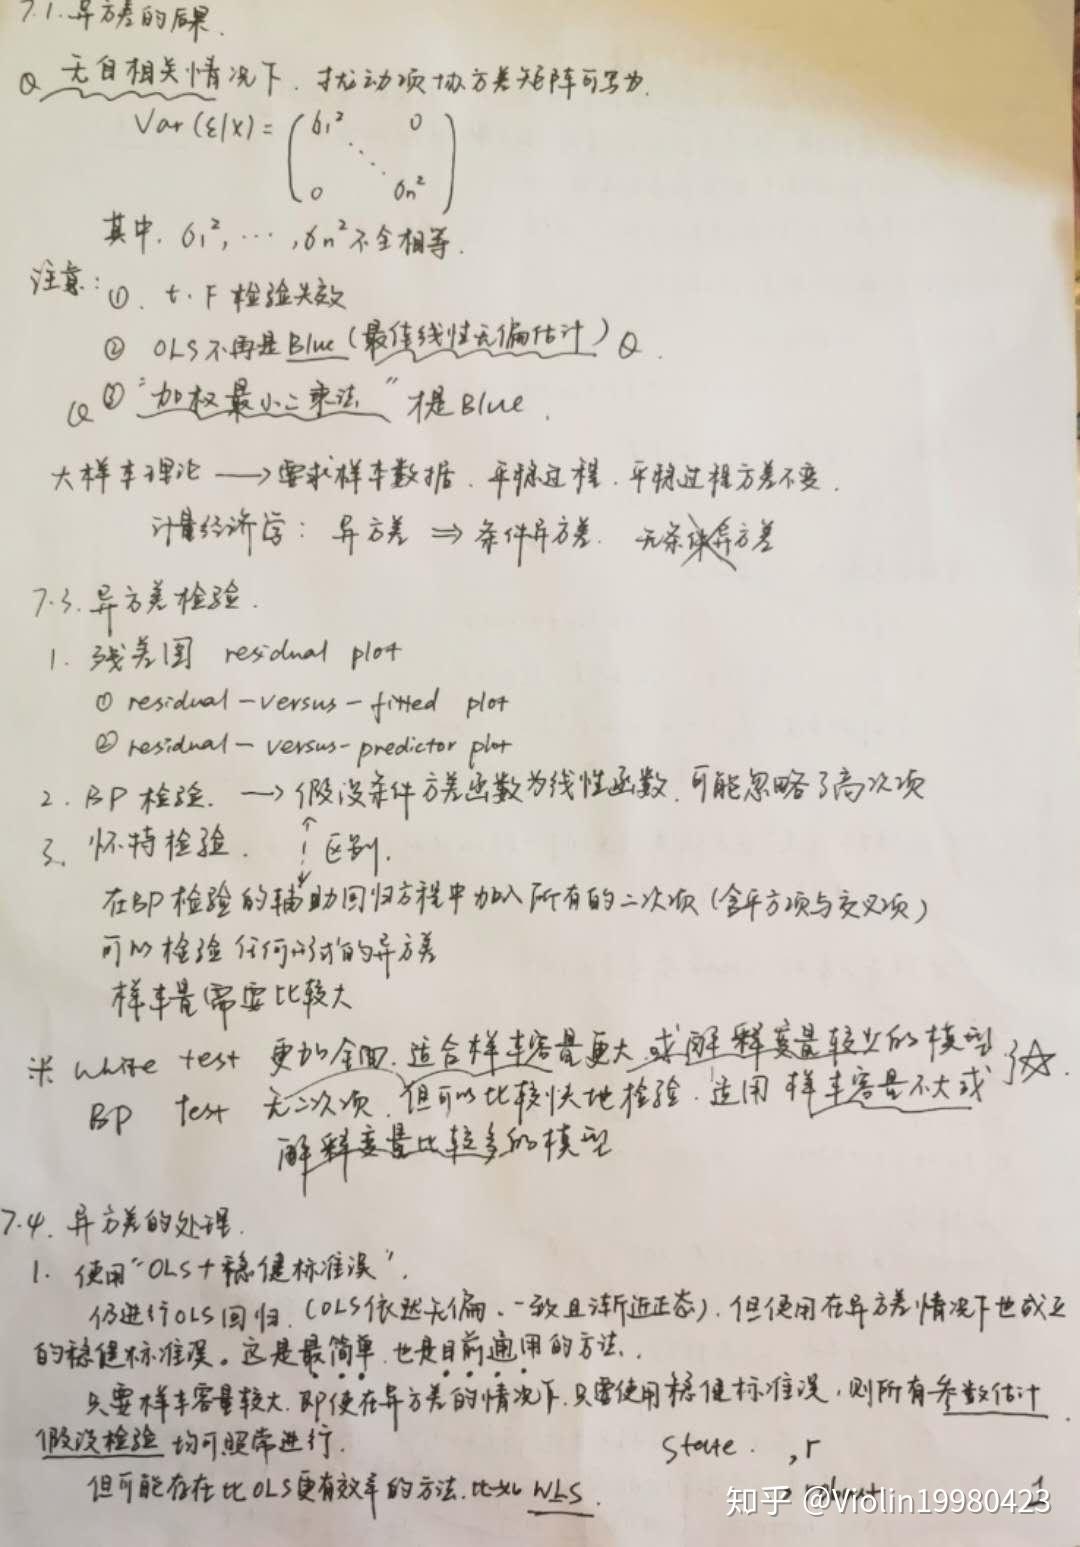 7.1. 异方差的后果.
无自相关情况下. 扰动项协方差矩阵可写为.
Var(ε|x) = ( σ1² 0
⋱
0 σn² )
其中. σ1², …, σn² 不全相等.
注意: ①. t. F 检验失效
② OLS不再是Blue (最佳线性无偏估计)
③ "加权最小二乘法" 才是Blue.
大样本理论 → 要求样本数据. 平稳过程. 平稳过程方差不变.
计量经济学: 异方差 ⇒ 条件异方差. 无条件异方差
7.3. 异方差检验.
1. 残差图 residual plot
① residual-versus-fitted plot
② residual-versus-predictor plot
2. BP检验. → 假设条件方差函数为线性函数. 可能忽略了高次项
3. 怀特检验. 区别.
在BP检验的辅助回归方程中加入所有的二次项 (含平方项与交叉项)
可以检验任何形式的异方差
样本量需要比较大
米 White test 更加全面. 适合样本容量更大. 或解释变量较少的模型
BP test 无二次项. 但可以比较快地检验. 适用 样本容量不大或
解释变量比较多的模型
7.4. 异方差的处理.
1. 使用"OLS+稳健标准误".
仍进行OLS回归. (OLS依然无偏、一致且渐近正态). 但使用在异方差情况下也成立
的稳健标准误。这是最简单. 也是目前通用的方法.
只要样本容量较大. 即使在异方差的情况下. 只需使用稳健标准误. 则所有参数估计
假设检验 均可照常进行.
state. , r
但可能存在比OLS更有效率的方法. 比如 WLS.
知乎 @Violin19980423
1